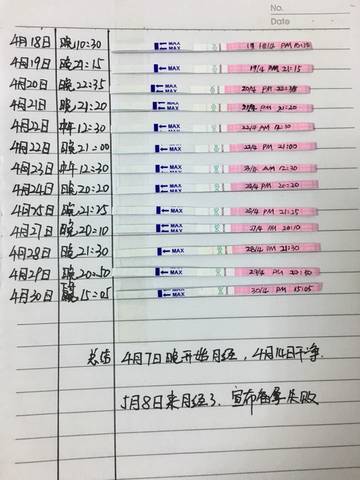 No.
Date
4月18日 晚10:30 MAX MAX 18/4 PM 10:30
4月19日 晚21:15 MAX 19/4 PM 21:15
4月20日 晚22:35 MAX MAX 20/4 PM 22:35
4月21日 晚21:20 MAX MAX 21/4 PM 21:20
4月22日 中午12:30 MAX MAX 22/4 PM 12:30
4月22日 晚21:00 MAX MAX 22/4 PM 21:00
4月23日 中午12:30 MAX MAX 23/4 AM 12:30
4月24日 晚20:20 MAX MAX 24/4 PM 20:20
4月25日 晚21:25 MAX MAX 25/4 PM 21:25
4月27日 晚20:10 MAX MAX 27/4 PM 20:10
4月28日 晚21:30 MAX MAX 28/4 PM 21:30
4月29日 晚20:50 MAX MAX 29/4 PM 20:50
4月30日 15:05 MAX MAX 30/4 PM 15:05
总结 4月7日晚开始月经,4月14日干净.
5月8日来月经了,宣布备孕失败